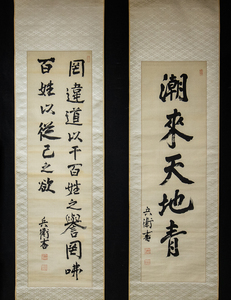 潮來天地青
兵衛書
罔違道以干百姓之譽罔咈
百姓以從己之欲
兵衛書